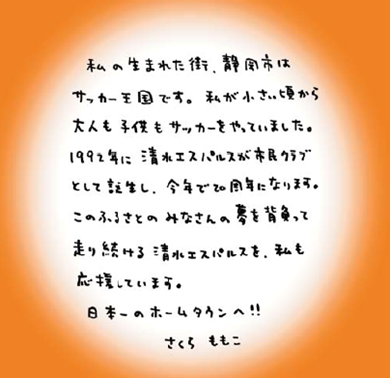 私の生まれた街、静岡市は
サッカー王国です。私が小さい頃から
大人も子供もサッカーをやっていました。
1992年に清水エスパルスが市民クラブ
として誕生し、今年で20周年になります。
このふるさとのみなさんの夢を背負って
走り続ける清水エスパルスを、私も
応援しています。
日本一のホームタウンへ!!
さくらももこ